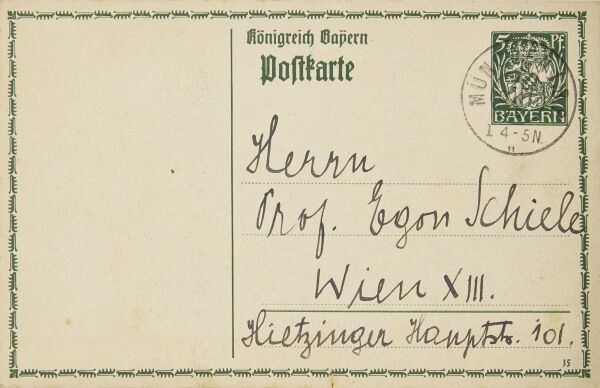 Königreich Bayern
Postkarte
5 Pf.
BAYERN
MÜN
I 4-5N.
Herrn
Prof. Egon Schiele
Wien XIII.
Hietzinger Hauptstr. 101.
15